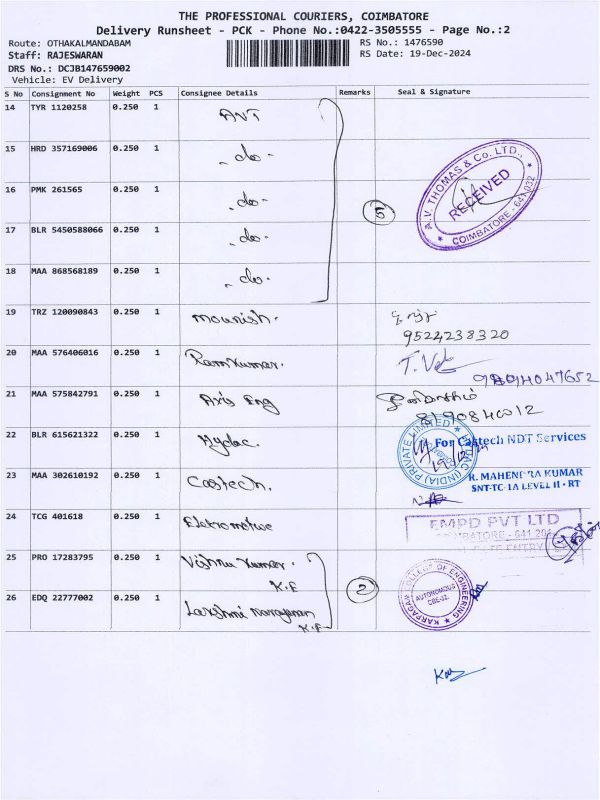 THE PROFESSIONAL COURIERS, COIMBATORE
Delivery Runsheet - PCK - Phone No.:0422-3505555 - Page No.:2
Route: OTHAKALMANDABAM
RS No.: 1476590
Staff: RAJESWARAN
RS Date: 19-Dec-2024
DRS No.: DCJB147659002
Vehicle: EV Delivery
S No Consignment No Weight PCS Consignee Details Remarks Seal & Signature
14 TYR 1120258 0.250 1 AVT
15 HRD 357169006 0.250 1 - do -
16 PMK 261565 0.250 1 - do -
17 BLR 5450588066 0.250 1 - do -
18 MAA 868568189 0.250 1 - do -
5
A.V. THOMAS & Co. LTD.,
RECEIVED
COIMBATORE - 641 032
19 TRZ 120090843 0.250 1 mounish.
9524238320
20 MAA 576406016 0.250 1 Ramkumar.
21 MAA 575842791 0.250 1 Axis Eng
22 BLR 615621322 0.250 1 Hydac.
For Castech NDT Services
23 MAA 302610192 0.250 1 Castech.
R. MAHENDRA KUMAR
SNT-TC-1A LEVEL II - RT
24 TCG 401618 0.250 1
EMPD PVT LTD
COIMBATORE - 641
25 PRO 17283795 0.250 1 Vishnu kumar.
K.E
2
KARPAGAM COLLEGE OF ENGINEERING
AUTONOMOUS
CBE-32.
26 EDQ 22777002 0.250 1 Lakshmi narayanan
K.E